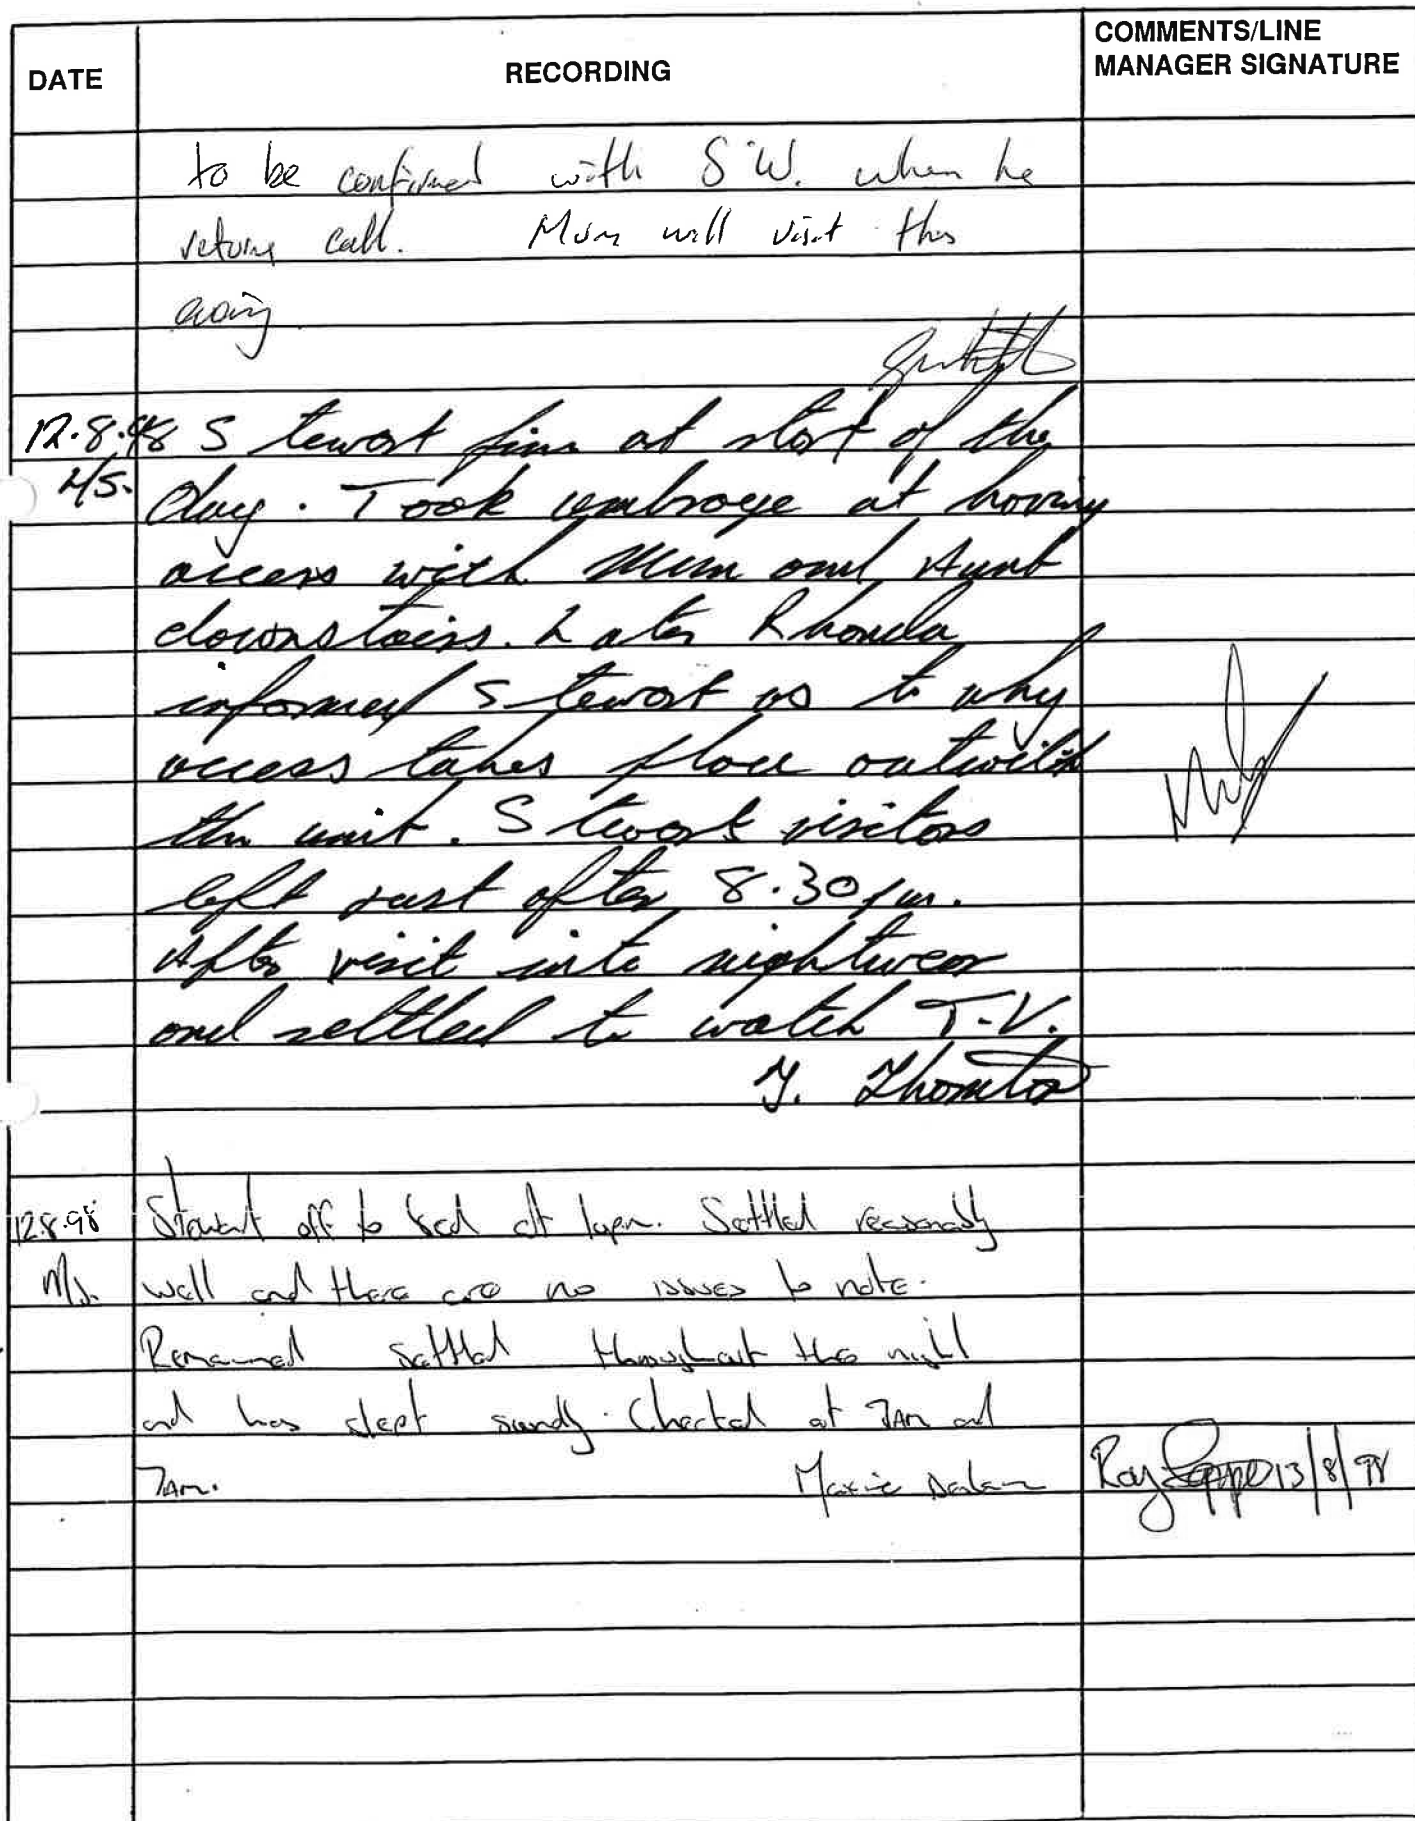 DATE
RECORDING
COMMENTS/LINE
MANAGER SIGNATURE
to be confirmed with S.W. when he
returns call. Mum will visit this
evening
12.8.98 Stewart fine at start of the
L/S. day. Took umbrage at having
access with Mum and Aunt
downstairs. Later Rhonda
informed Stewart as to why
access takes place outwith
the unit. Stewart visitors
left just after 8.30pm.
After visit into nightwear
and settled to watch T.V.
12.8.98 Stewart off to bed at 10pm. Settled reasonably
well and there are no issues to note.
Remained settled throughout the night
and has slept soundly. Checked at 7AM and
7AM.
Roy 13/8/98